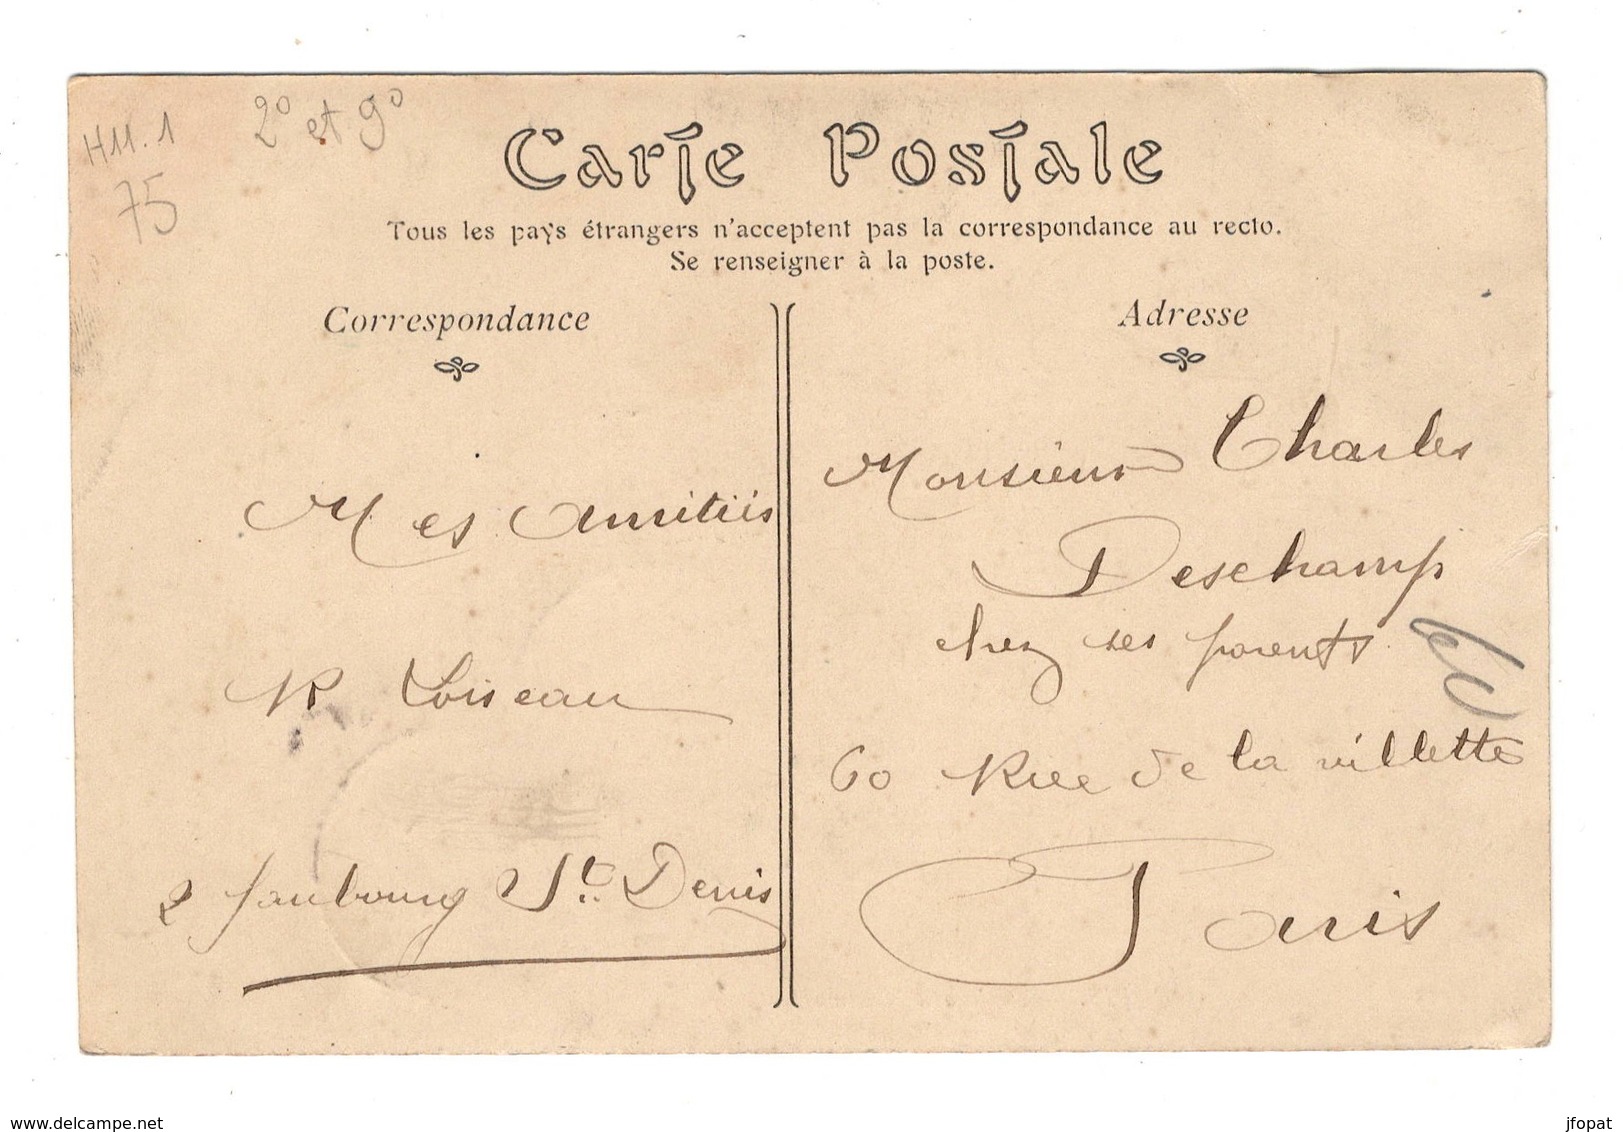 H11.1
75
2° et 9°
Carte Postale
Tous les pays étrangers n'acceptent pas la correspondance au recto.
Se renseigner à la poste.
Correspondance
Mes amitiés
Loiseau
2 faubourg St. Denis
Adresse
Monsieur Charles
Deschamps
chez ses parents
60 Rue de la villette
Paris
delcampe.net
jfopat